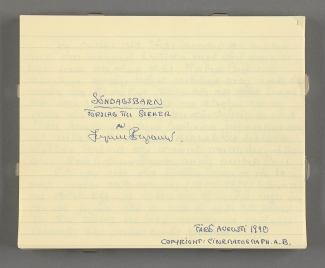 SÖNDAGSBARN
FÖRSLAG TILL SCENER
AV
Ingmar Bergman.
FÅRÖ AUGUSTI 1990
COPYRIGHT: CINEMATOGRAPH. A.B.